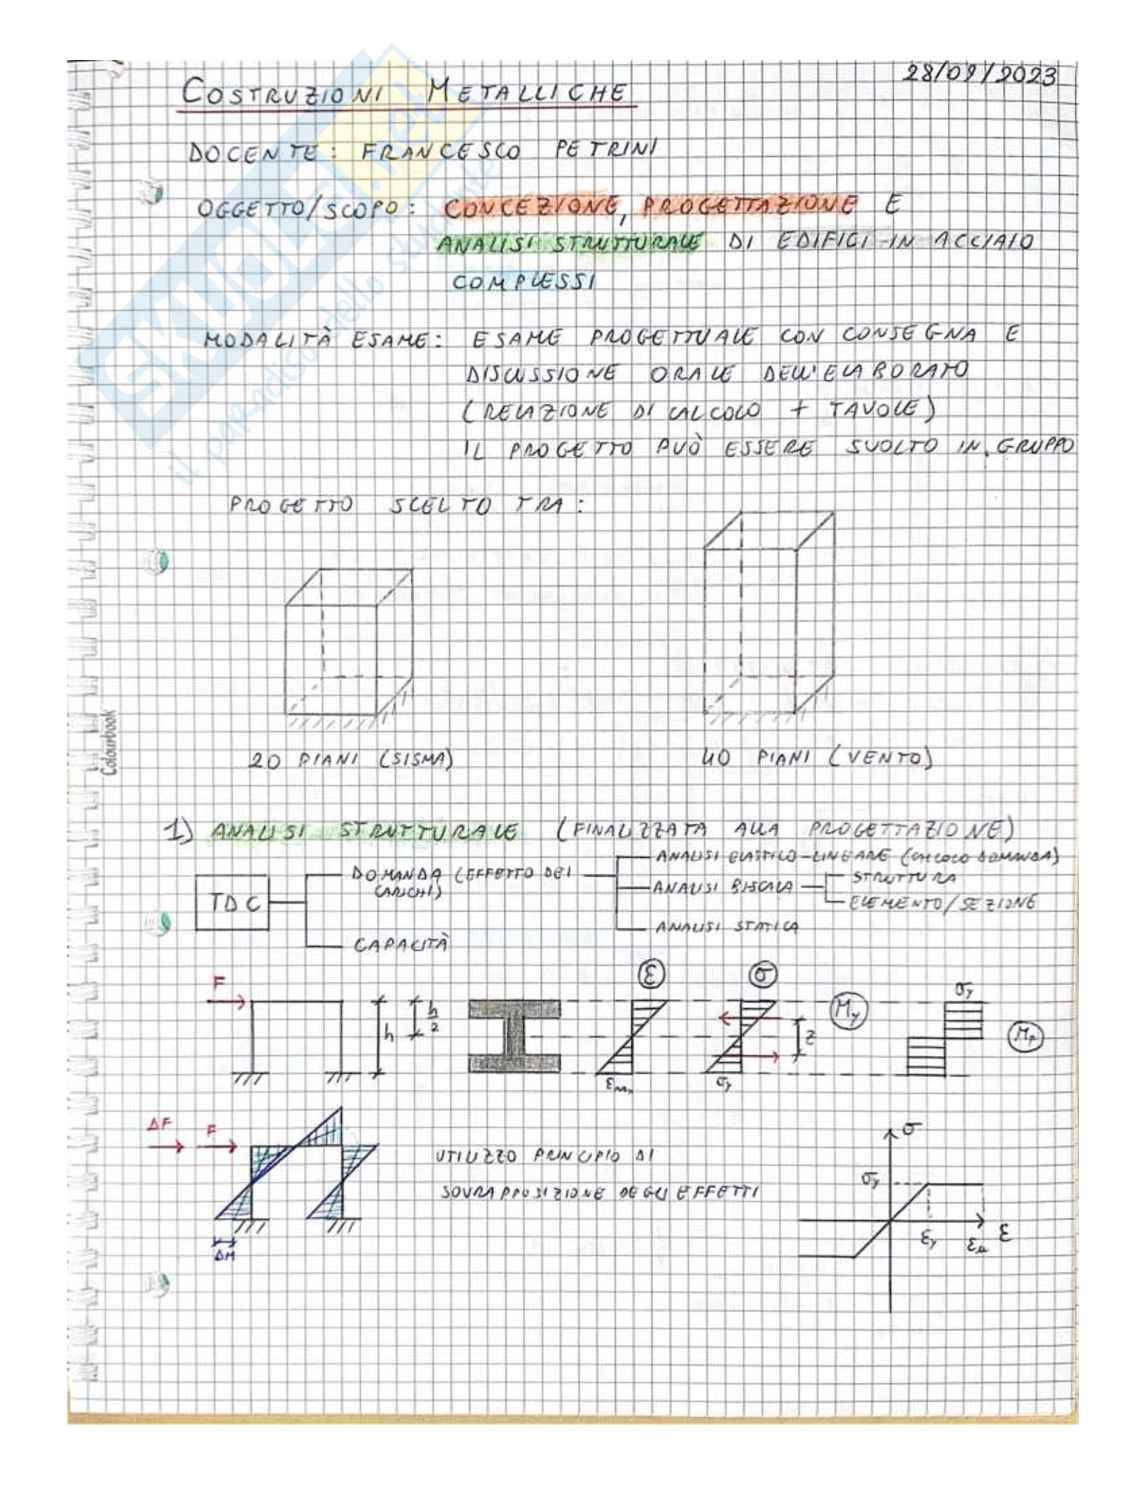 28/09/2023
COSTRUZIONI METALLICHE
DOCENTE: FRANCESCO PETRINI
OGGETTO/SCOPO: CONCEZIONE, PROGETTAZIONE E
ANALISI STRUTTURALE DI EDIFICI IN ACCIAIO
COMPLESSI
MODALITÀ ESAME: ESAME PROGETTUALE CON CONSEGNA E
DISCUSSIONE ORALE DELL'ELABORATO
(RELAZIONE DI CALCOLO + TAVOLE)
IL PROGETTO PUÒ ESSERE SVOLTO IN GRUPPO
PROGETTO SCELTO TRA:
20 PIANI (SISMA)
40 PIANI (VENTO)
Colourbook
1) ANALISI STRUTTURALE (FINALIZZATA ALLA PROGETTAZIONE)
TDC
DOMANDA (EFFETTO DEI
CARICHI)
CAPACITÀ
ANALISI ELASTICO-LINEARE (CALCOLO DOMANDA)
ANALISI BISCALA
STRUTTURA
ELEMENTO/SEZIONE
ANALISI STATICA
F
h
h/2
ε
σ
My
z
σy
σy
Mp
ΔF
F
ΔM
UTILIZZO PRINCIPIO DI
SOVRAPPOSIZIONE DEGLI EFFETTI
σ
σy
εy
εu
ε
SKUOLA.net
il paradiso dello studente